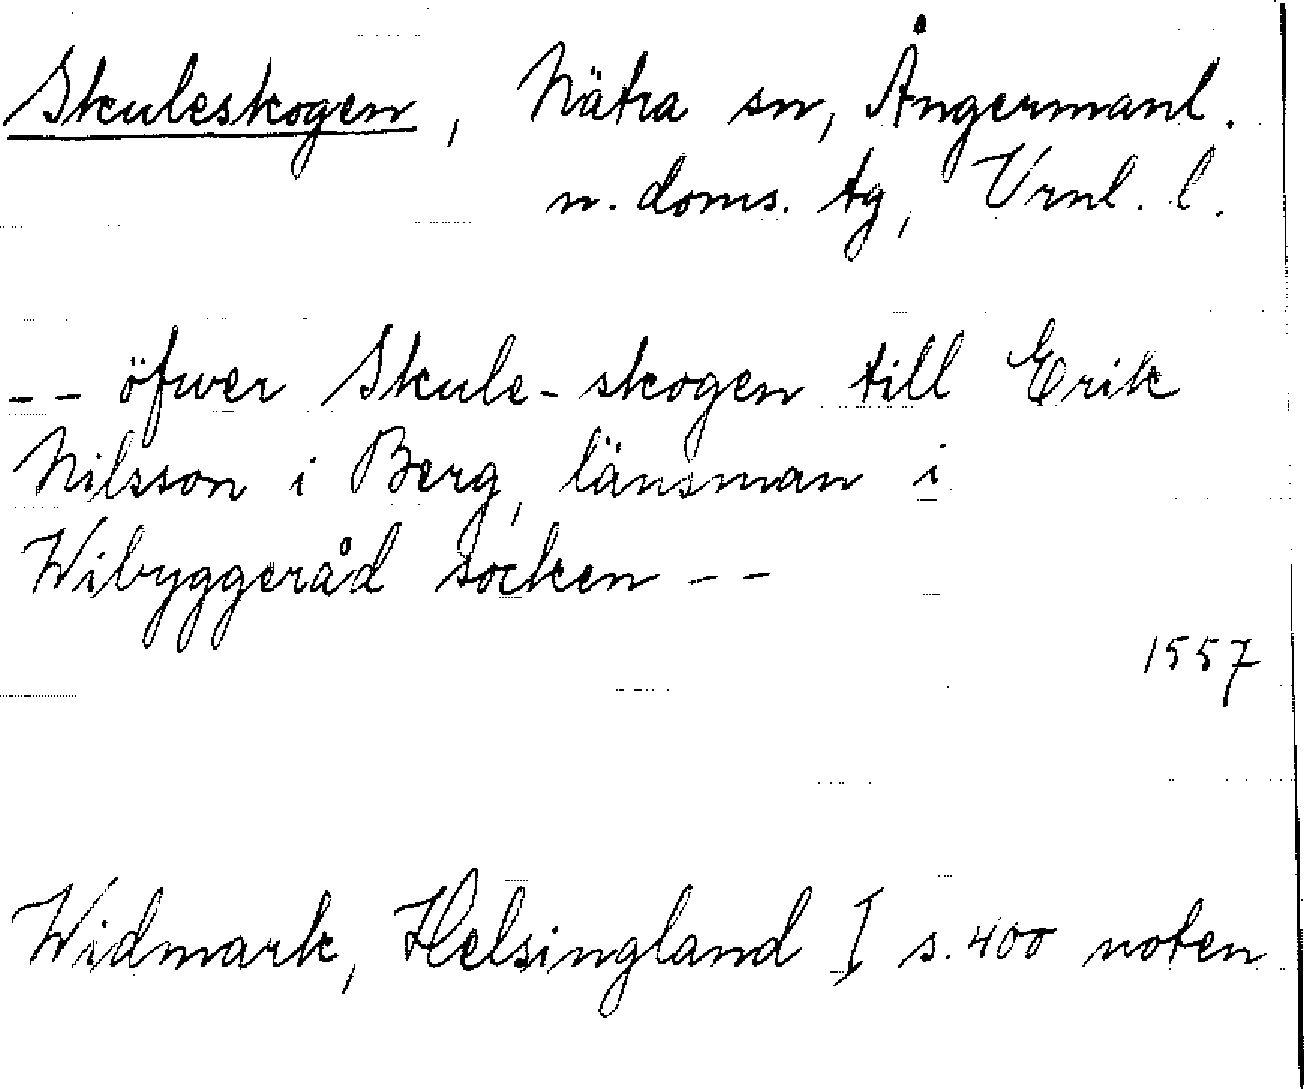 Skuleskogen, Nätra sn, Ångermanl.
n. doms. tg, Vrnl. l.
-- öfwer Skule-skogen till Erik
Nilsson i Berg, länsman i
Wibyggeråd socken --
1557
Widmark, Helsingland I s. 400 noten